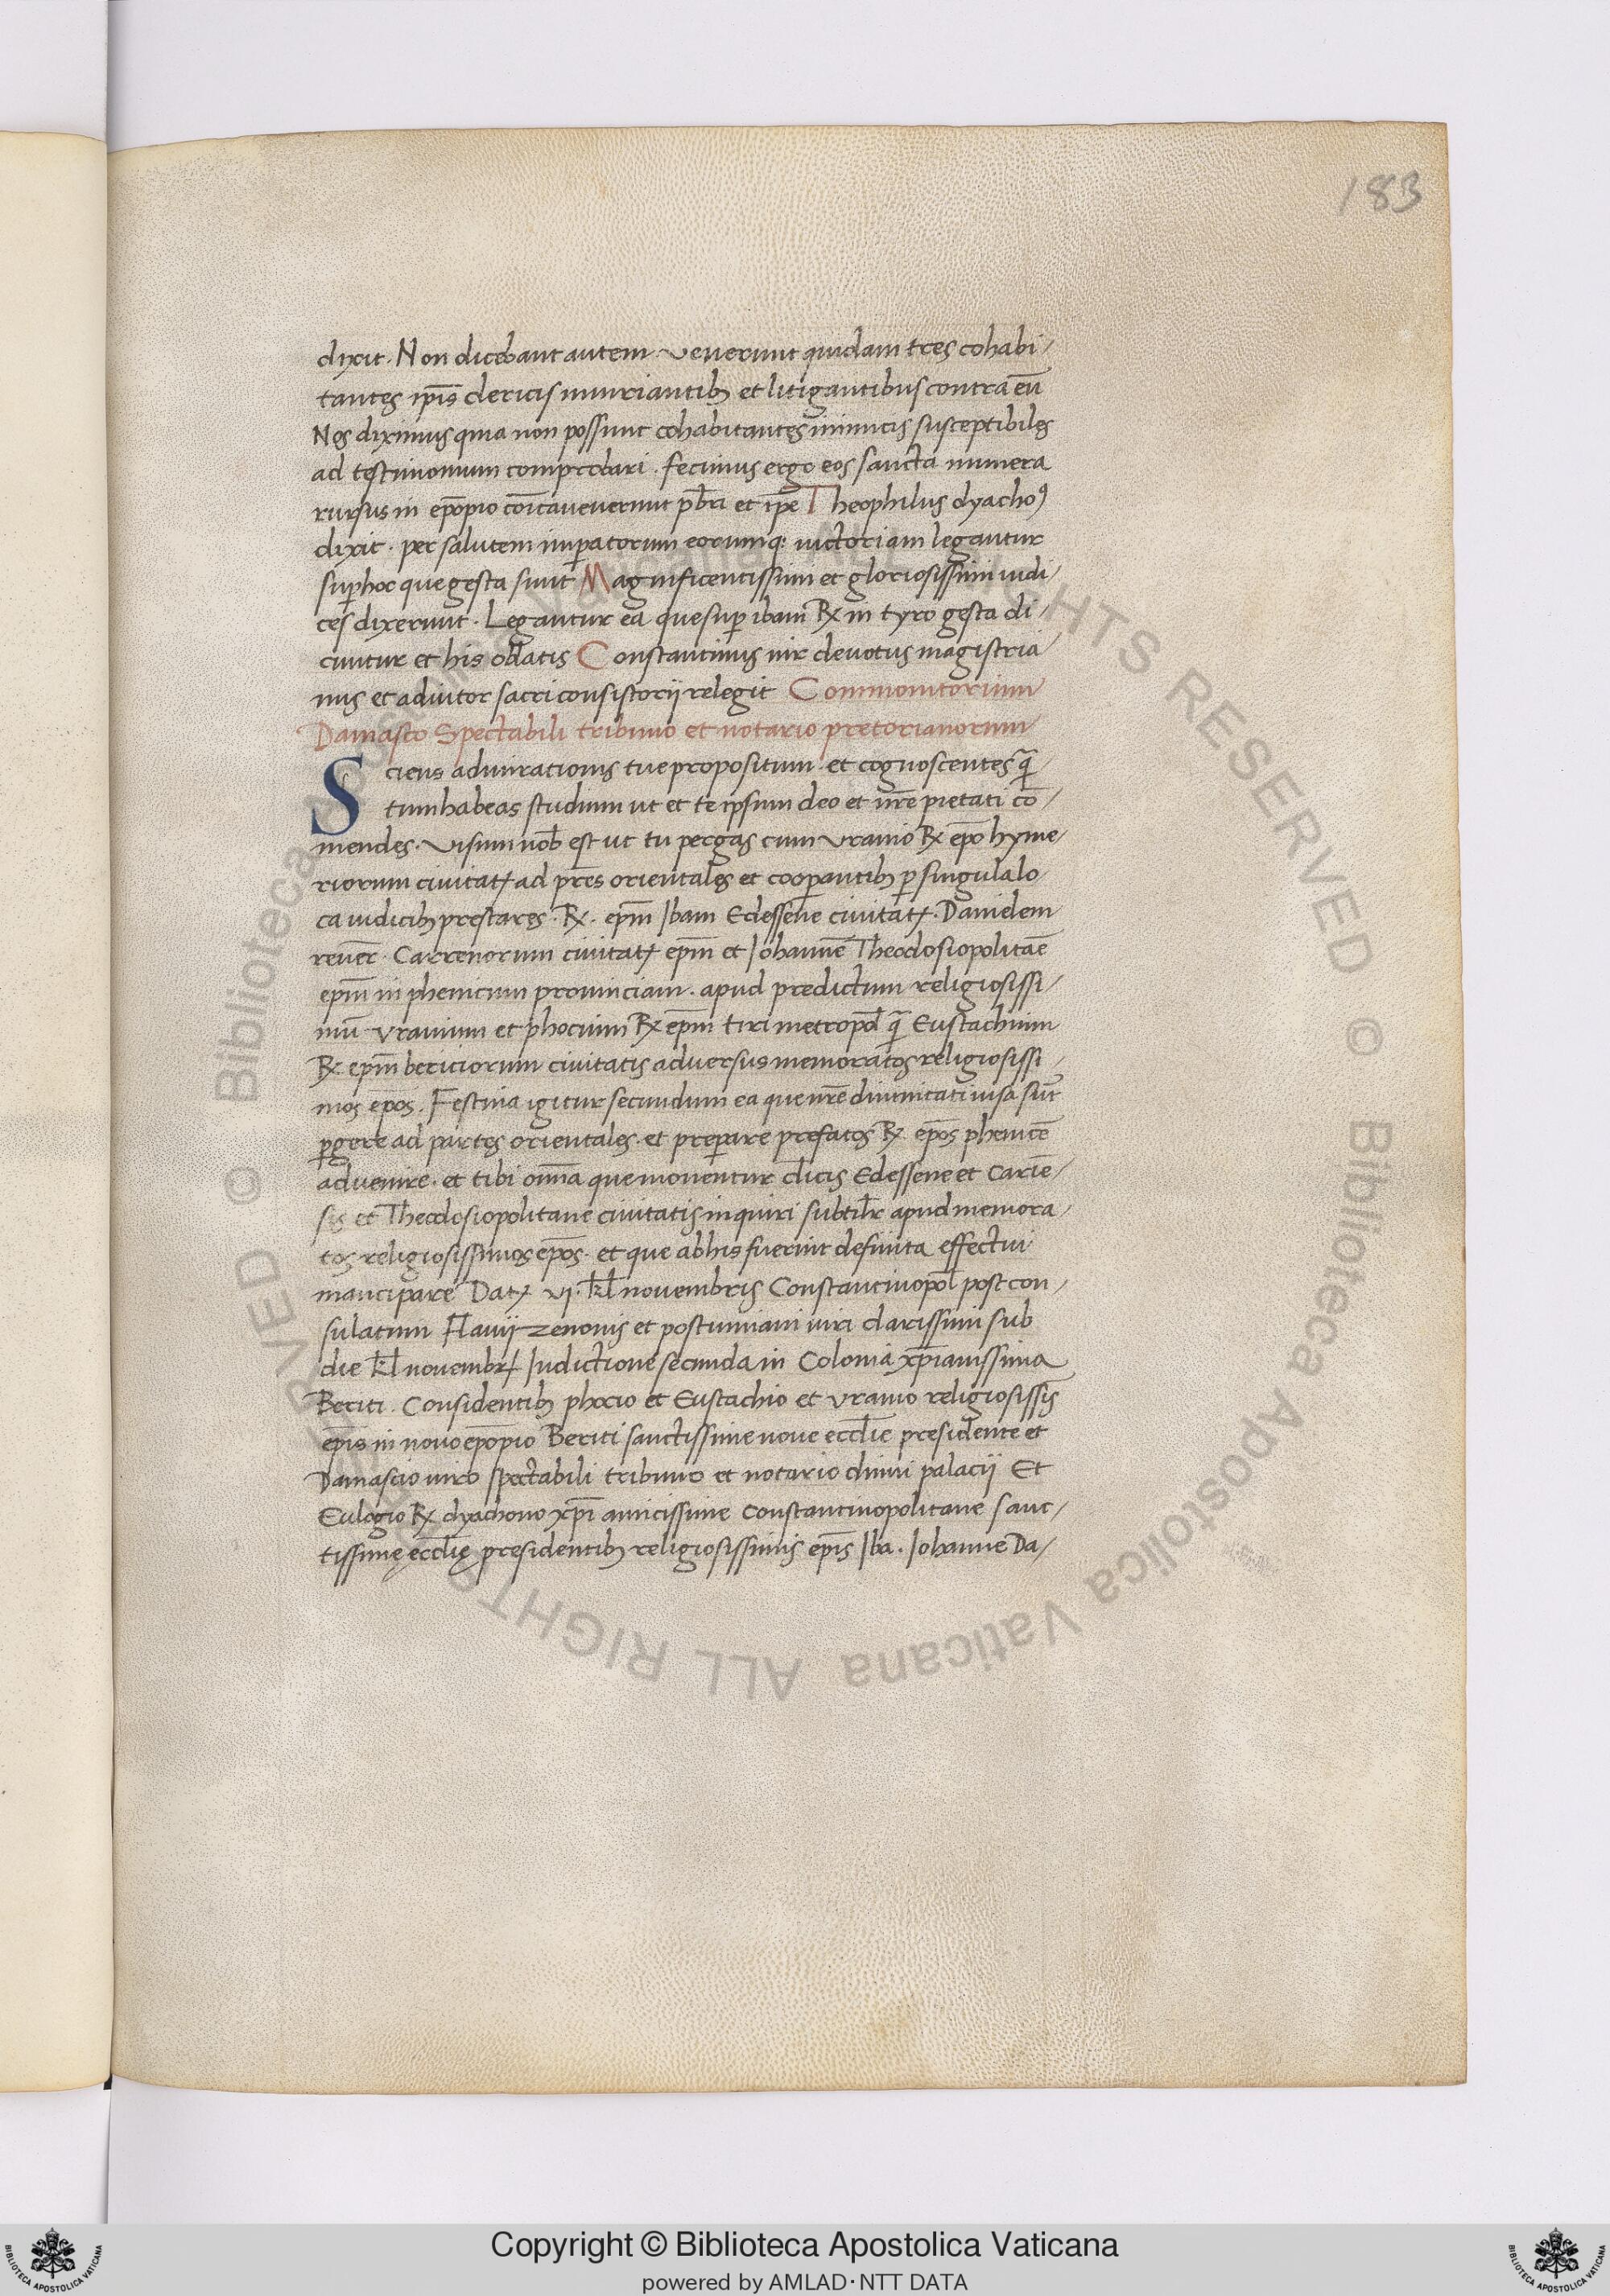 183
dixit. Non dicebant autem. Venerunt quidam tres cohabi/
tantes ip̄is clericis iniuriantibꝫ et litigantibus contra eū
Nos diximus quia non possunt cohabitantes inimicis susceptibiles
ad testimonium comprobari. fecimus ergo eos sancta munera
rursus in ep̄opio cōīca uenerunt pb̄ri et ip̄e Theophilus dyachoꝰ
dixit. per salutem imꝑatorum eorumqꝫ uictoriam legantur
suꝑ hoc que gesta sunt Magnificentissimi et gloriosissimi iudi/
ces dixerunt. Legantur ea que suꝑ ibam R͞x in tyro gesta di/
cuntur et his oblatis Constantinus uir deuotus magistria/
nus et adiutor sacri consistorii relegit Commonitorium
Damasco Spectabili tribuno et notario pretorianorum
Sciens admirationis tue propositum. et cognoscentes qā/
tum habeas studium ut et te ipsum deo et nr̄e pietati cō/
mendes. Visum nob̄ est ut tu pergas cum Vranio R͞x ep̄o hyme/
riorum ciuitatꝭ ad pr̄es orientales et cooꝑantibꝫ ꝑ singula lo/
ca iudicibꝫ prestares. R͞x. ep̄m Ibam Edessene ciuitatꝭ. Danielem
reuer̄. Carrenorum ciuitatꝭ ep̄m et Johannē Theodosiopolitaē
ep̄m in phenicum prouinciam. apud predictum religiosissi/
mū Vranium et phocium R͞x ep̄m tiri metropol̄ qā Eustachium
R͞x ep̄m beritiorum ciuitatis aduersus memoratos religiosissi/
mos ep̄os. Festina igitur secundum ea que nr̄e diuinitati uisa sūt
ꝑgere ad partes orientales. et preꝑare prefatos R͞x ep̄os phenicē
aduenire. et tibi om̄a que mouentur cl̄icis Edessene et Cariē/
sis et Theodosiopolitane ciuitatis inquiri subtil̄r apud memora/
tos religiosissimos ep̄os. et que ab his fuerint definita effectui
mancipare Datꝭ VI. kl̄ nouembris Constantinopol̄ post con/
sulatum Flauij zenonis et postumiani uiri clarissimi sub
die kl̄ nouembr̄ Indictione secunda in Colonia xp̄ianissima
Beriti. Considentibꝫ phocio et Eustachio et Vranio religiosissīs
ep̄is in nouo ep̄opio Beriti sanctissime noue eccl̄ie presidente et
Damascio uiro spectabili tribuno et notario diuini palacij Et
Eulogio R͞x dyachono xp̄i amicissime Constantinopolitane sanc/
tissimę eccl̄ię presidentibꝫ religiosissimis ep̄is Iba. Johanne Da/
© Biblioteca Apostolica Vaticana ALL RIGHTS RESERVED
© Biblioteca Apostolica Vaticana ALL RIGHTS RESERVED
Copyright © Biblioteca Apostolica Vaticana
powered by AMLAD·NTT DATA
BIBLIOTECA APOSTOLICA VATICANA
BIBLIOTECA APOSTOLICA VATICANA